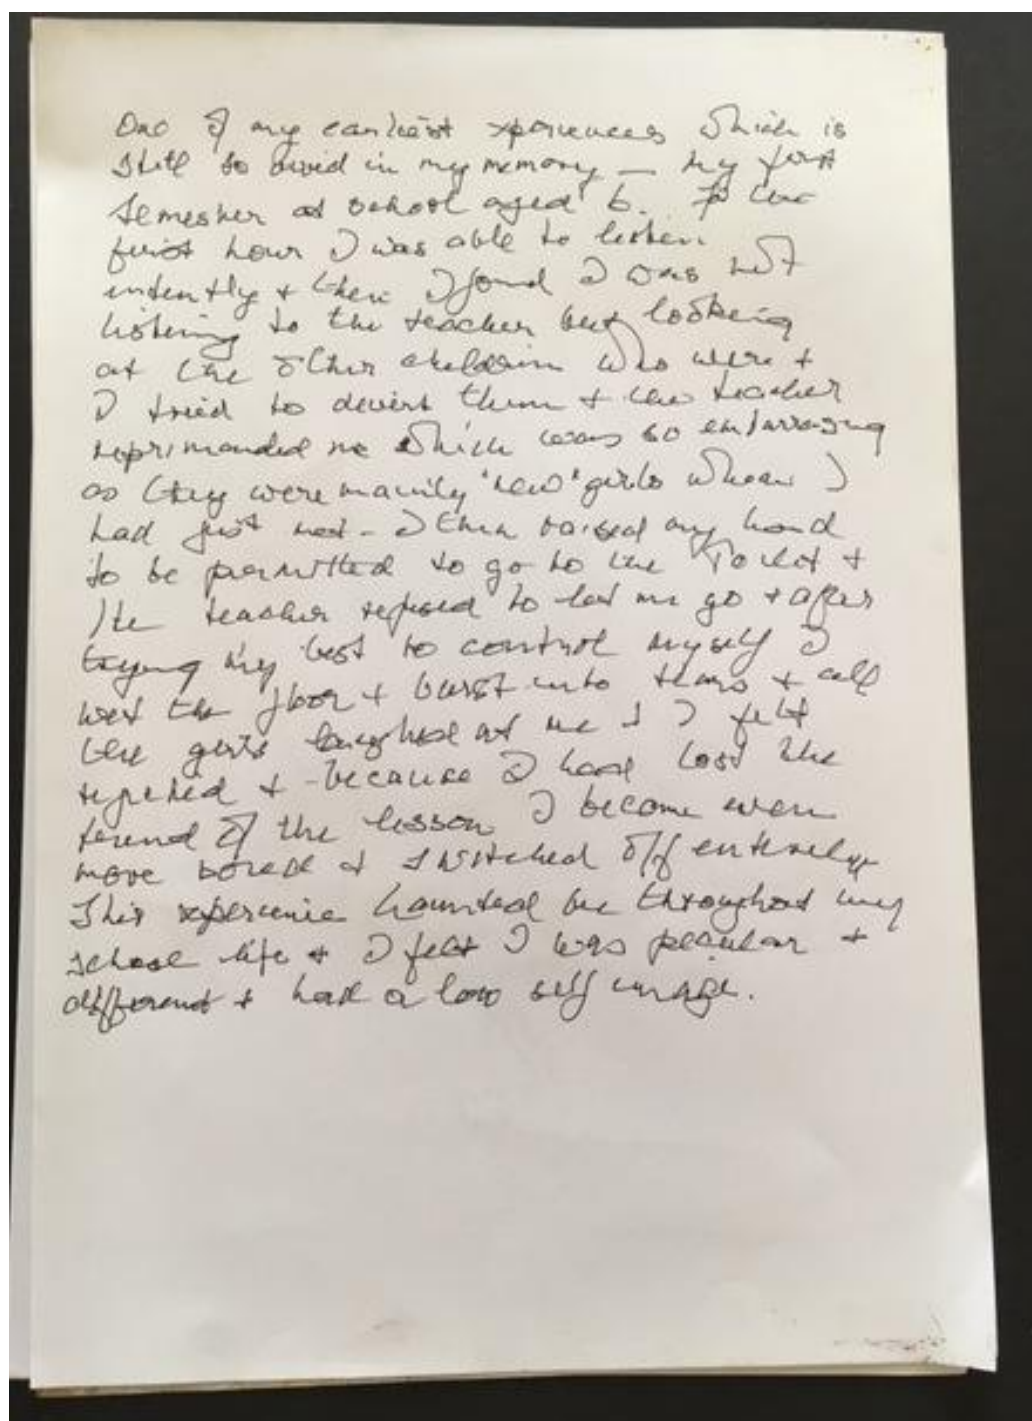 One of my earliest xperiences which is
still so vivid in my memory — my first
semester at school aged 6. For the
first hour I was able to listen
intently + then I found I was not
listening to the teacher but looking
at the other children who were +
I tried to divert them + the teacher
reprimanded me which was so embarrassing
as they were mainly 'new' girls whom I
had just met - I then raised my hand
to be permitted to go to the Toilet +
the teacher refused to let me go + after
trying my best to control myself I
wet the floor + burst into tears + all
the girls laughed at me + I felt
rejected + - because I had lost the
of the lesson I became even
more bored + switched off entirely
This xperience haunted me throughout my
school life + I felt I was peculiar +
different + had a low self image.